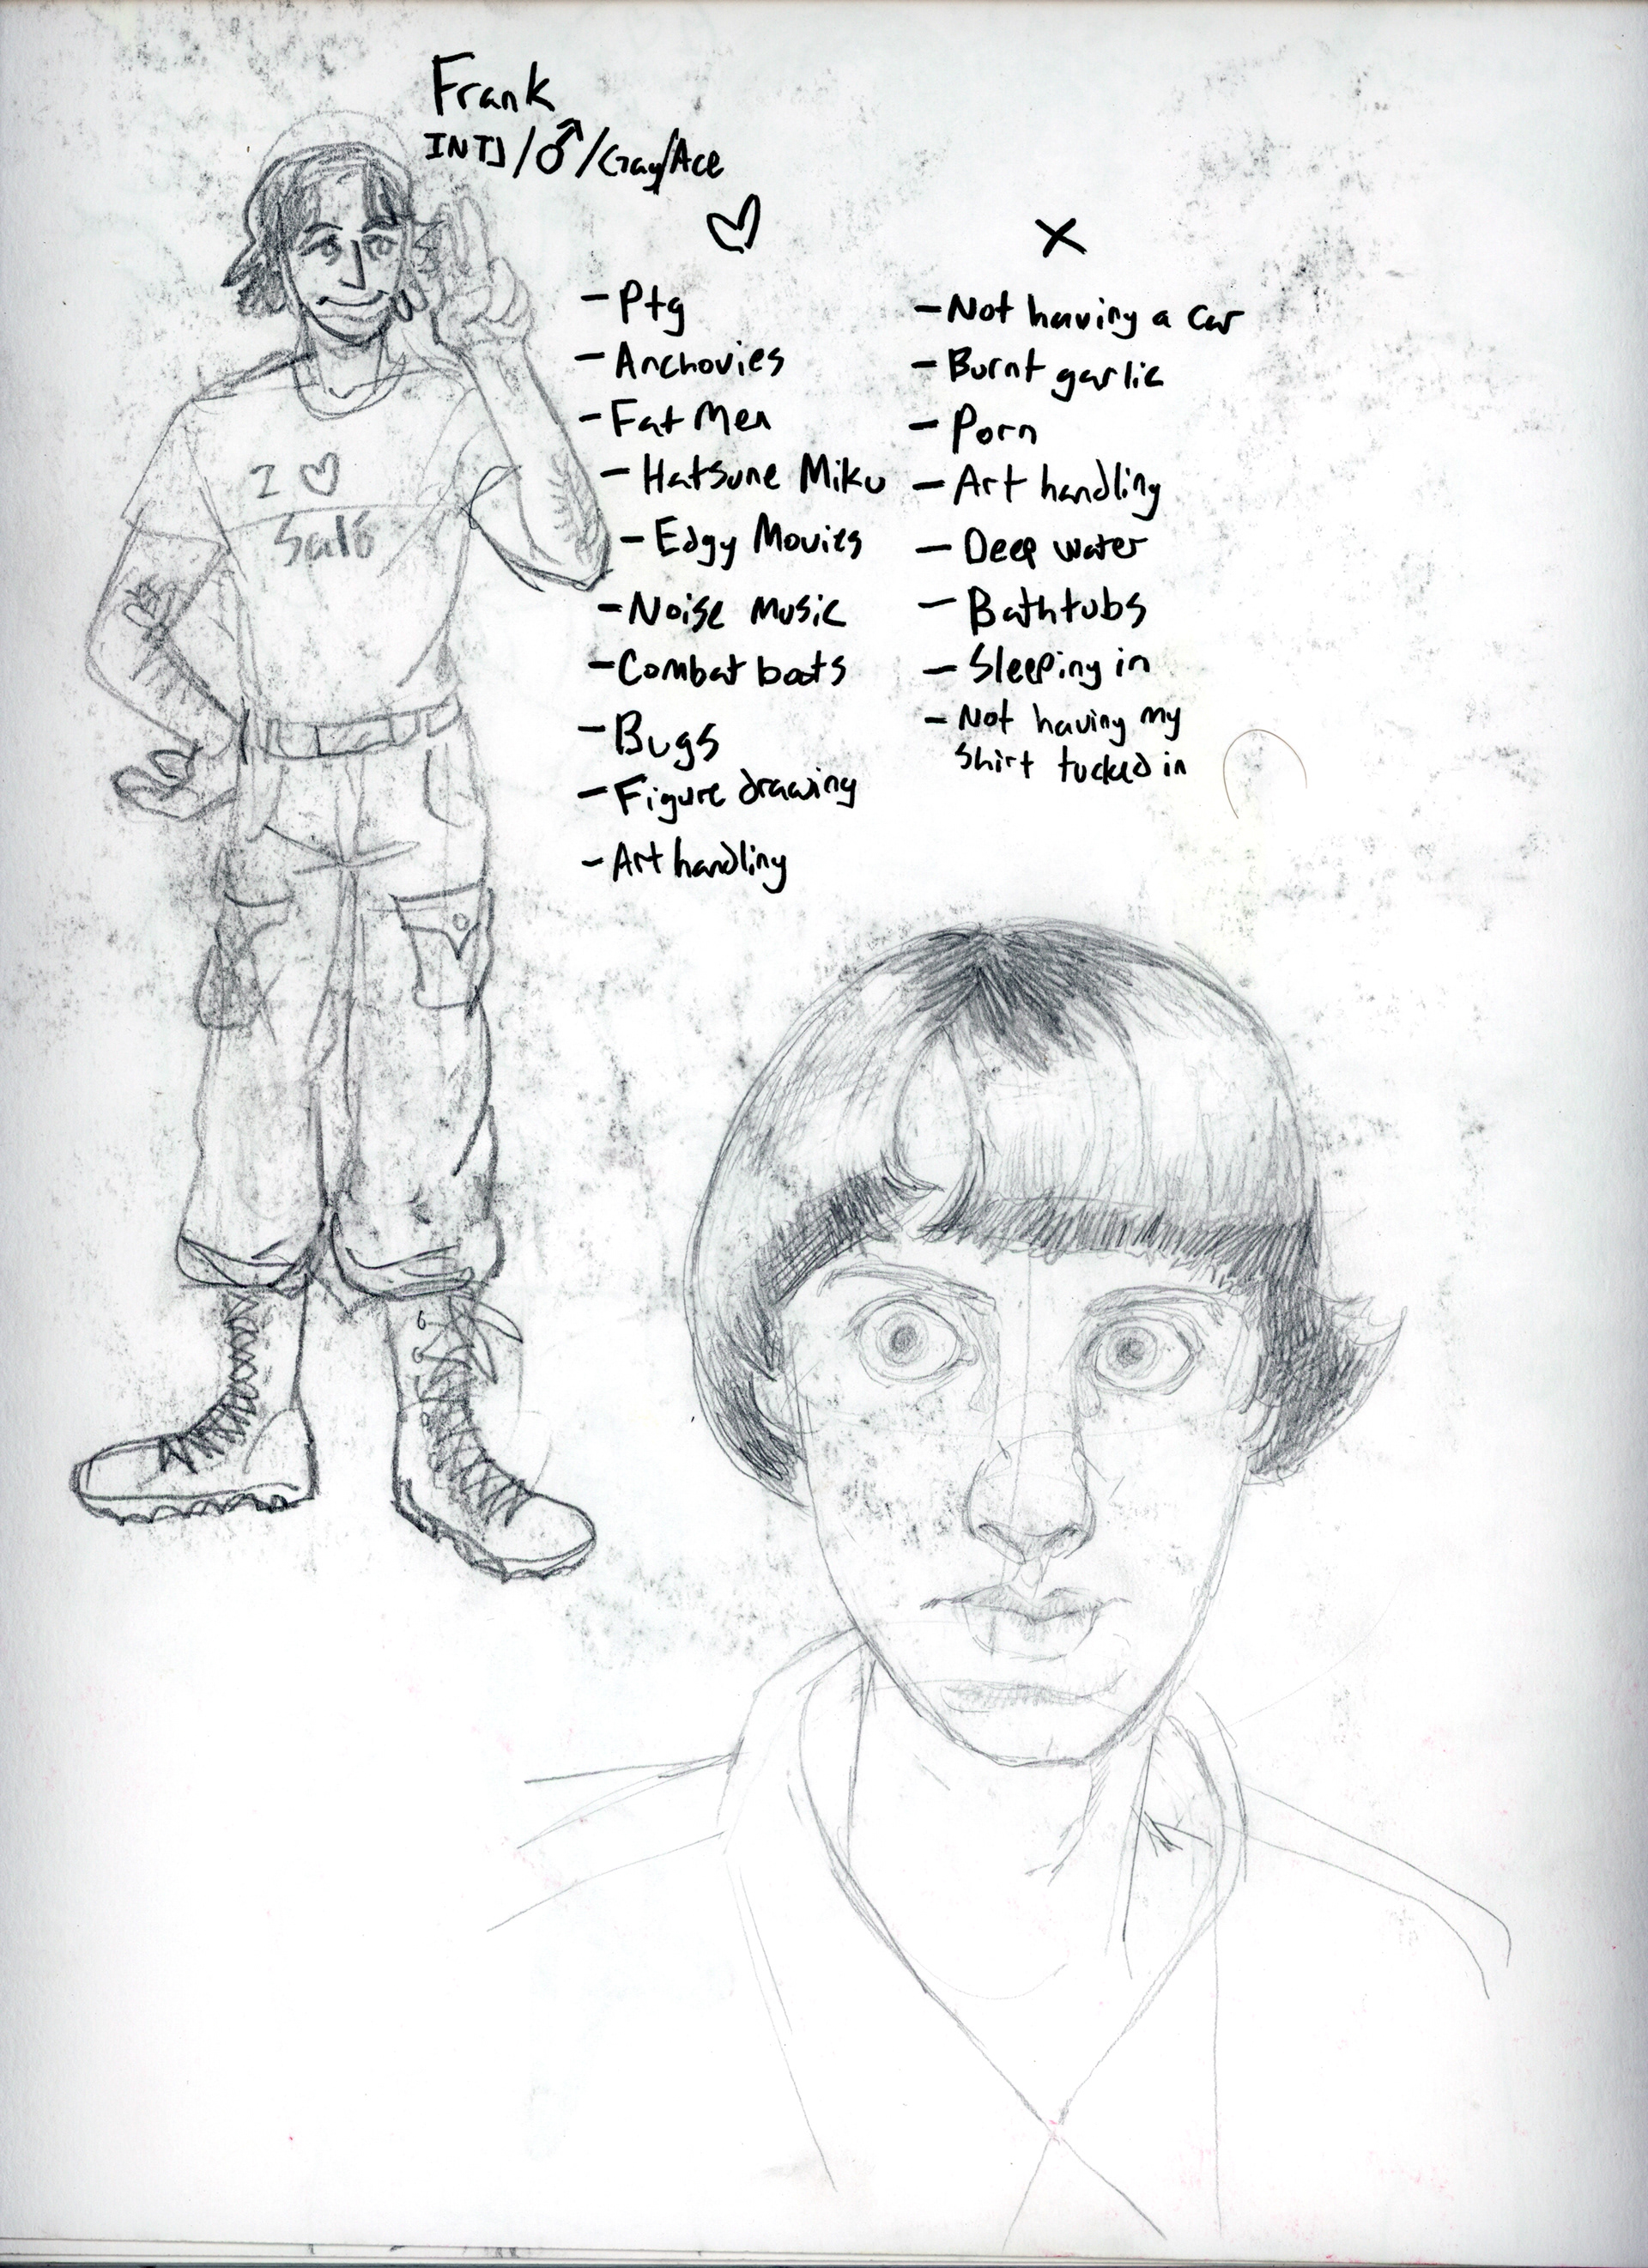 Frank
INTJ/♂/Gay/Ace
♡
- Ptg
- Anchovies
- Fat Men
- Hatsune Miku
- Edgy Movies
- Noise music
- Combat boots
- Bugs
- Figure drawing
- Art handling
×
- Not having a car
- Burnt garlic
- Porn
- Art handling
- Deep water
- Bathtubs
- Sleeping in
- Not having my
shirt tucked in
I ♡
Saló